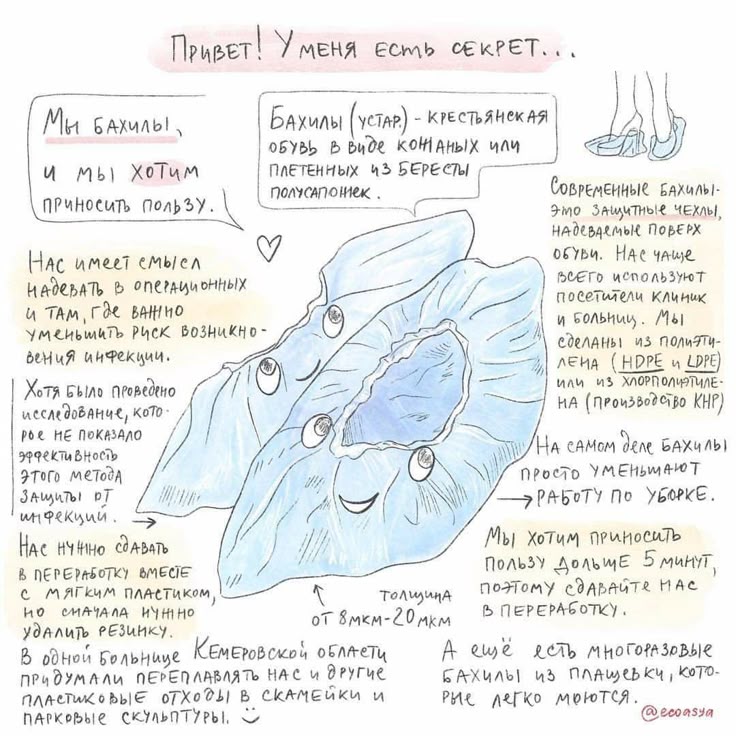 Привет! У меня есть секрет...
Мы бахилы,
и мы хотим
приносить пользу.
Бахилы (устар.) - крестьянская
обувь в виде кожаных или
плетенных из бересты
полусапожек.
Современные бахилы-
это защитные чехлы,
надеваемые поверх
обуви. Нас чаще
всего используют
посетители клиник
и больниц. Мы
сделаны из полиэти-
лена (HDPE и LDPE)
или из хлорполиэтиле-
на (производство КНР)
Нас имеет смысл
надевать в операционных
и там, где важно
уменьшить риск возникно-
вения инфекции.
Хотя было проведено
исследование, кото-
рое не показало
эффективность
этого метода
защиты от
инфекций.
На самом деле бахилы
просто уменьшают
работу по уборке.
Нас нужно сдавать
в переработку вместе
с мягким пластиком,
но сначала нужно
удалить резинку.
Мы хотим приносить
пользу дольше 5 минут,
поэтому сдавайте нас
в переработку.
толщина
от 8мкм-20мкм
В одной больнице Кемеровской области
придумали переплавлять нас и другие
пластиковые отходы в скамейки и
парковые скульптуры.
А ещё есть многоразовые
бахилы из плащевки, кото-
рые легко моются.
@ecoasya